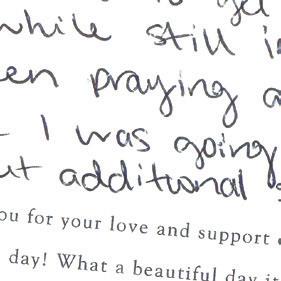 while still i
en praying a
I was going
ut additional
ou for your love and support
day! What a beautiful day it